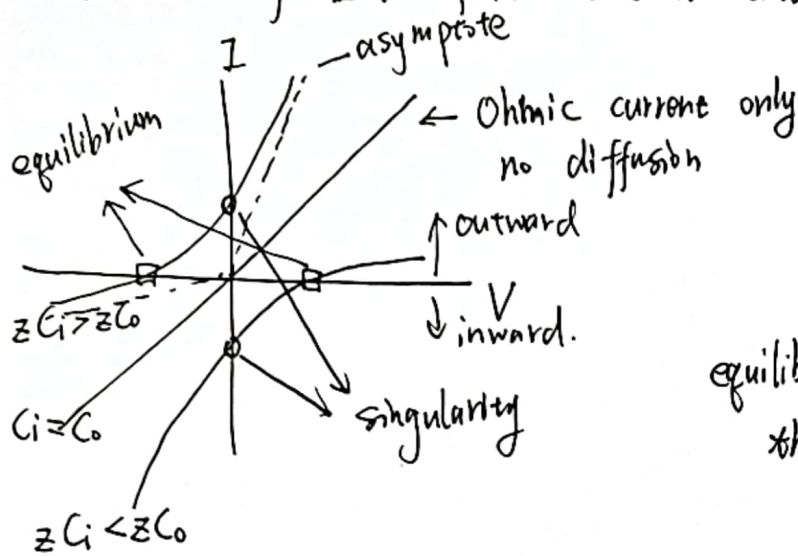 I
asymptote
equilibrium
← Ohmic current only
no diffusion
↑ outward
V
↓ inward.
zCi>zCo
Ci=Co
singularity
zCi<zCo
equilib
th